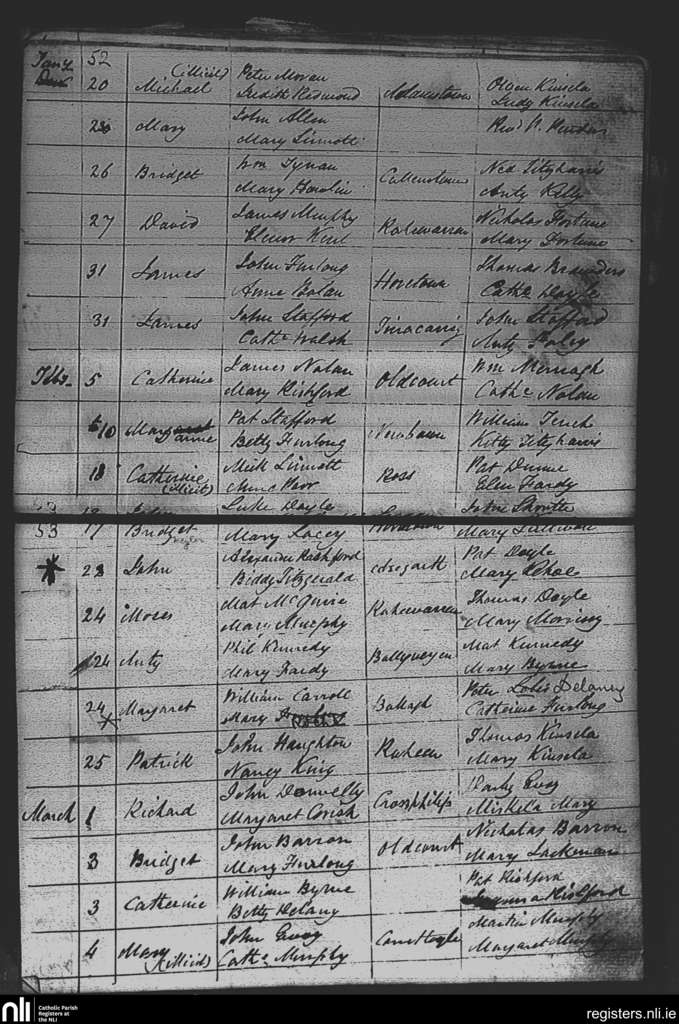 Jany 52
20 Michael (illicit) Peter Moran
Judith Redmond Adamstown Owen Kinsela
Judy Kinsela
Mary John Allen
Mary Sinnott Revd
26 Bridget Wm Tynan
Mary Howlin Cullenstown Ned Fitzharris
Anty Kelly
27 David James Murphy
Elenor Kent Rahewarren Nicholas Fortune
Mary Fortune
31 James John Furlong
Anne Bolan Horetown Thomas
Cathe Doyle
31 James John Stafford
Cathe Walsh John Stafford
Anty Foley
Feby 5 Catherine James Nolan
Mary Rishford Oldcourt Wm Mernagh
Cathe Nolan
10 Pat Stafford
Betty Furlong Newbawn William
Kitty Fitzharris
18 Catherine (illicit) Mick Sinnott
Anne Ross Pat Dunne
Ellen Fardy
Luke Doyle John
53 17 Bridget Mary Lacey Horetown Mary Sullivan
23 John Rashford
Biddy Fitzgerald Pat Doyle
Mary Kehoe
24 Moses Mat McGuire
Mary Murphy Rahewarren Thomas Doyle
Mary Morrissy
24 Anty Phil Kennedy
Mary Fardy Mat Kennedy
Mary Byrne
24 Margaret William Carroll
Mary Ballagh Peter Delaney
Catherine Furlong
25 Patrick John Naughton
Nancy King Raheen Thomas Kinsela
Mary Kinsela
March 1 Richard John Donnelly
Margaret Corish Crossphilip Darby Evoy
Miskela Mary
3 Bridget John Barron
Mary Furlong Oldcourt Nicholas Barron
Mary
3 Catherine William Byrne
Betty Delany Pat Rishford
Rishford
4 Mary (illicit) John Evoy
Cathe Murphy Martin Murphy
Margaret Murphy
nli Catholic Parish
Registers at
the NLI
registers.nli.ie